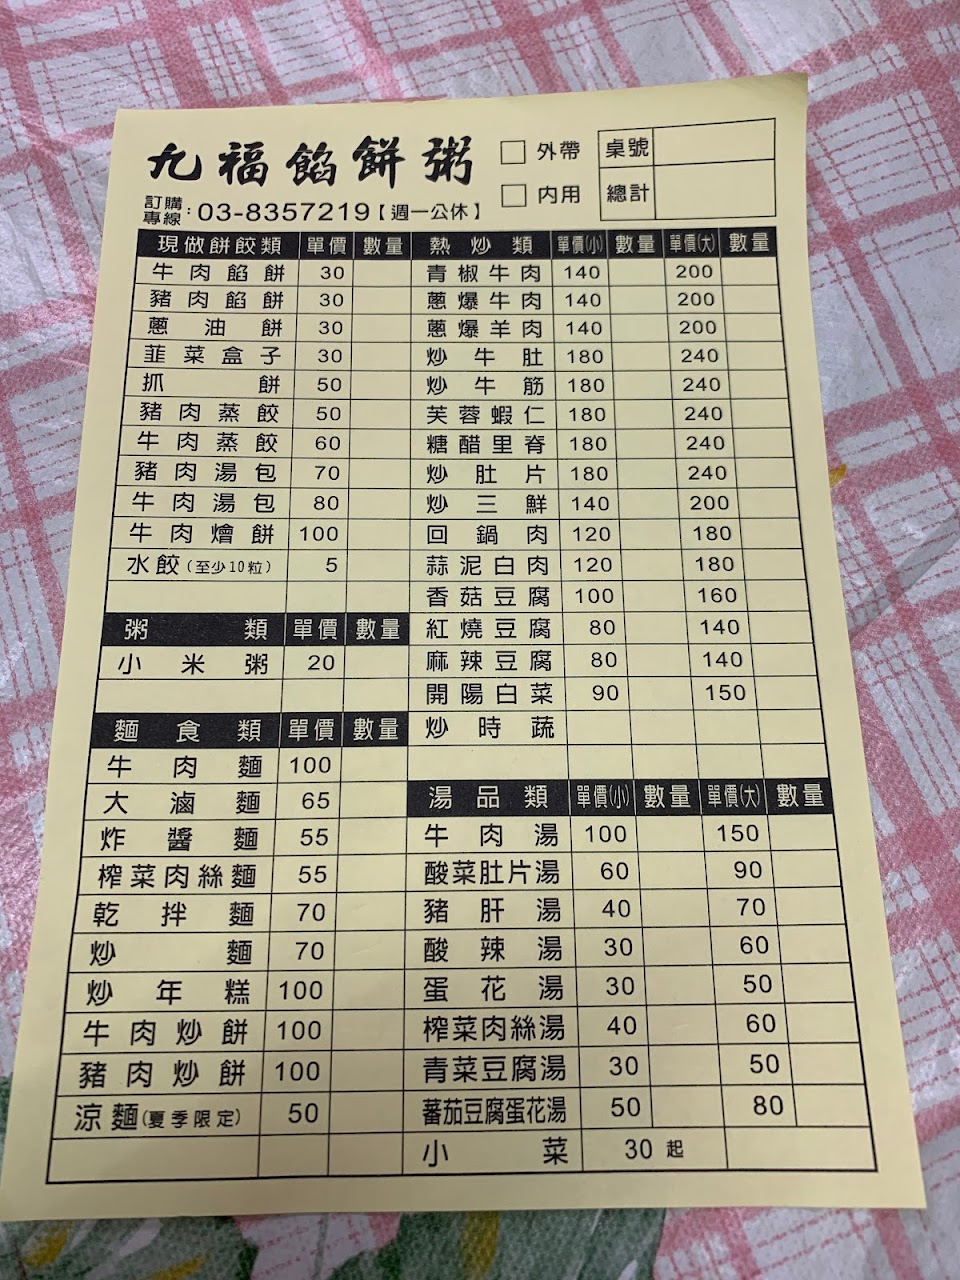 九福餡餅粥
□ 外帶 桌號
□ 內用 總計
訂購專線：03-8357219【週一公休】
現做餅餃類 單價 數量
牛肉餡餅 30
豬肉餡餅 30
蔥油餅 30
韮菜盒子 30
抓餅 50
豬肉蒸餃 50
牛肉蒸餃 60
豬肉湯包 70
牛肉湯包 80
牛肉燴餅 100
水餃（至少10粒） 5
粥類 單價 數量
小米粥 20
麵食類 單價 數量
牛肉麵 100
大滷麵 65
炸醬麵 55
榨菜肉絲麵 55
乾拌麵 70
炒麵 70
炒年糕 100
牛肉炒餅 100
豬肉炒餅 100
涼麵（夏季限定） 50
熱炒類 單價(小) 數量 單價(大) 數量
青椒牛肉 140 200
蔥爆牛肉 140 200
蔥爆羊肉 140 200
炒牛肚 180 240
炒牛筋 180 240
芙蓉蝦仁 180 240
糖醋里脊 180 240
炒肚片 180 240
炒三鮮 140 200
回鍋肉 120 180
蒜泥白肉 120 180
香菇豆腐 100 160
紅燒豆腐 80 140
麻辣豆腐 80 140
開陽白菜 90 150
炒時蔬
湯品類 單價(小) 數量 單價(大) 數量
牛肉湯 100 150
酸菜肚片湯 60 90
豬肝湯 40 70
酸辣湯 30 60
蛋花湯 30 50
榨菜肉絲湯 40 60
青菜豆腐湯 30 50
蕃茄豆腐蛋花湯 50 80
小菜 30起